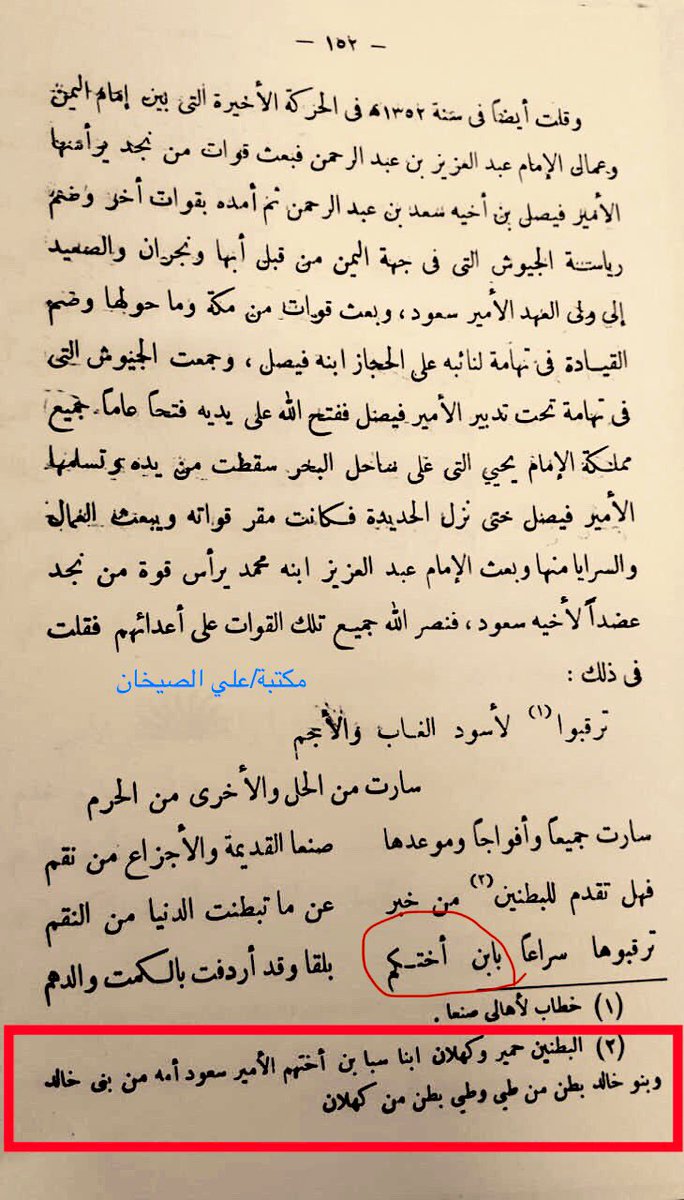 - ١٥٢ -
وقلت أيضاً فى سنة ١٣٥٢ه فى الحركة الأخيرة التى بين إمام اليمن
وعمالى الإمام عبد العزيز بن عبد الرحمن فبعث قوات من نجد يرأسها
الأمير فيصل بن أخيه سعد بن عبد الرحمن ثم أمده بقوات أخر وضم
رياسة الجيوش التى فى جهة اليمن من قبل أبها ونجران والصعيد
إلى ولى العهد الأمير سعود ، وبعث قوات من مكة وما حولها وضم
القيادة فى تهامة لنائبه على الحجاز ابنه فيصل ، وجمعت الجيوش التى
فى تهامة تحت تدبير الأمير فيصل ففتح الله على يديه فتحاً عاماً جميع
مملكة الإمام يحيي التى على ساحل البحر سقطت من يده وتسلمها
الأمير فيصل حتى نزل الحديدة فكانت مقر قواته ويبعث العمال
والسرايا منها وبعث الإمام عبد العزيز ابنه محمد يرأس قوة من نجد
عضداً لأخيه سعود ، فنصر الله جميع تلك القوات على أعدائهم فقلت
فى ذلك :
مكتبة/علي الصيخان
ترقبوا (١) لأسود الغاب والأجم
سارت من الحل والأخرى من الحرم
سارت جميعاً وأفواجاً وموعدها صنعا القديمة والأجزاع من نقم
فهل تقدم للبطنين (٢) من خبر عن ما تبطنت الدنيا من النقم
ترقبوها سراعاً بابن أختكم بلقا وقد أردفت بالكمت والدهم
(١) خطاب لأهالى صنعا .
(٢) البطنين حمير وكهلان ابنا سبا بن أختهم الأمير سعود أمه من بنى خالد
وبنو خالد بطن من طي وطي بطن من كهلان